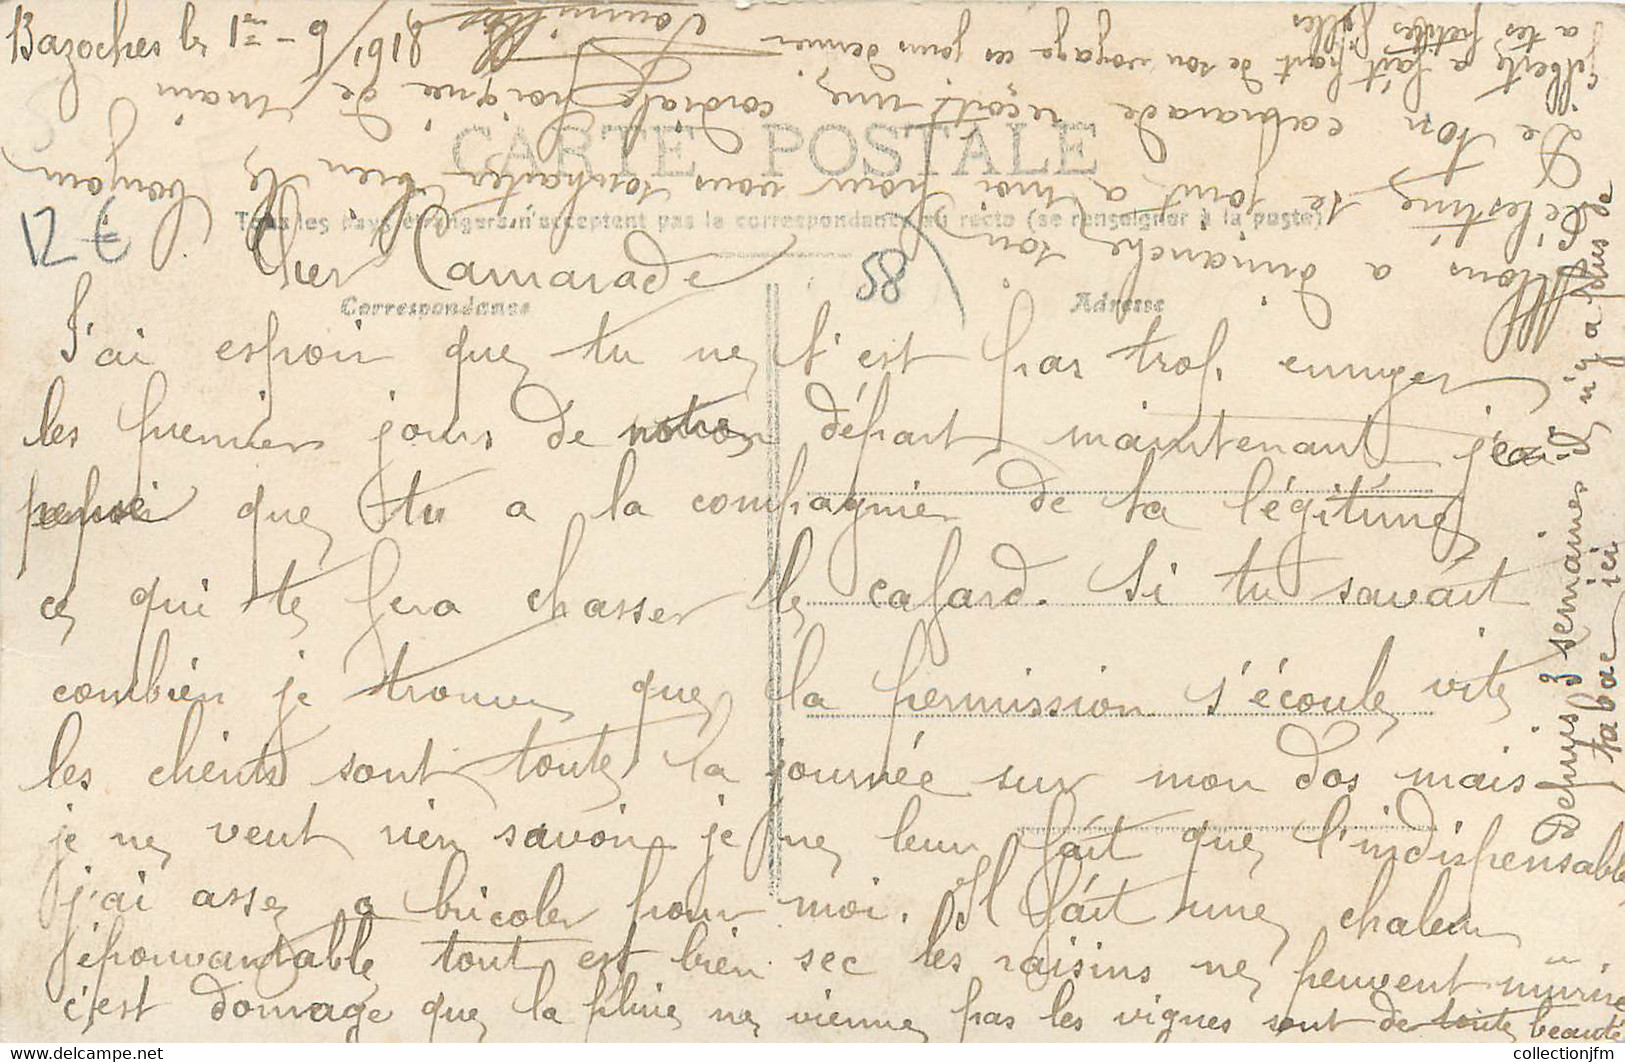 Bazoches le 1er - 9/1918
CARTE POSTALE
Tous les pays étrangers n'acceptent pas la correspondance au recto (se renseigner à la poste)
12 €
58
Correspondance
Adresse
Cher Camarade
J'ai espoir que tu ne t'est pas trop ennuyer
les premier jours de notre départ maintenant
que tu a la compagnie de ta légitime
ce qui te fera chasser le cafard. Si tu savait
combien je trouve que la permission s'écoule vite
les clients sont toute la journée sur mon dos mais
je ne veut rien savoir je ne leur fait que l'indispensable
j'ai assez a bricoler pour moi. Il fait une chaleur
épouvantable tout est bien sec les raisins ne peuvent mûrire
c'est domage que la pluie ne vienne pas les vignes sont de toute beauté
Depuis 3 semaines il n'y a plus de
tabac ici
Allons, a dimanche, ton
Célestine se joint a moi pour vous souhaiter bien le bonjour
De ton camarade reçoit une cordiale poignée de main
Gilberte a fait part de son voyage ces jours dernier
a tes petites filles
collectionjfm